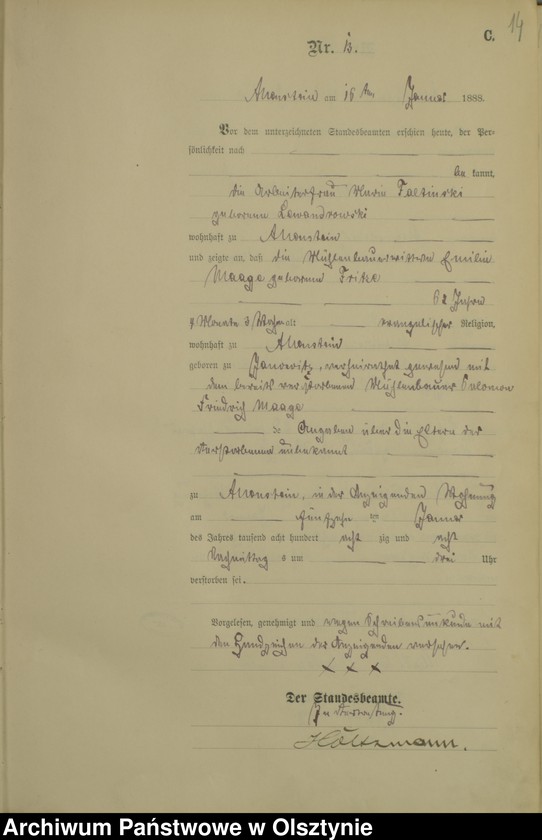 C. 14
Nr. 13.
Allenstein am 16 ten Januar 1888.
Vor dem unterzeichneten Standesbeamten erschien heute, der Per-
sönlichkeit nach
be kannt,
die Arbeiterfrau Maria
geborene Lewandrowski
wohnhaft zu Allenstein
und zeigte an, daß die Mühlenbauerwittwe Emilie
Maage geborene Fritze
62 Jahre
9 Monate 3 alt evangelischer Religion,
wohnhaft zu Allenstein
geboren zu verheirathet gewesen mit
dem bereits verstorbenen Mühlenbauer Salomon
Friedrich Maage
Angaben über die Eltern der
Verstorbenen unbekannt
zu Allenstein, in der Anzeigenden Wohnung
am fünfzehn ten Januar
des Jahres tausend acht hundert acht zig und acht
Nachmittags um drei Uhr
verstorben sei.
Vorgelesen, genehmigt und wegen Schreibensunkunde mit
den Handzeichen der Anzeigenden versehen.
x x x
Der Standesbeamte.
In Vertretung.
Höltzmann.
Archiwum Państwowe w Olsztynie